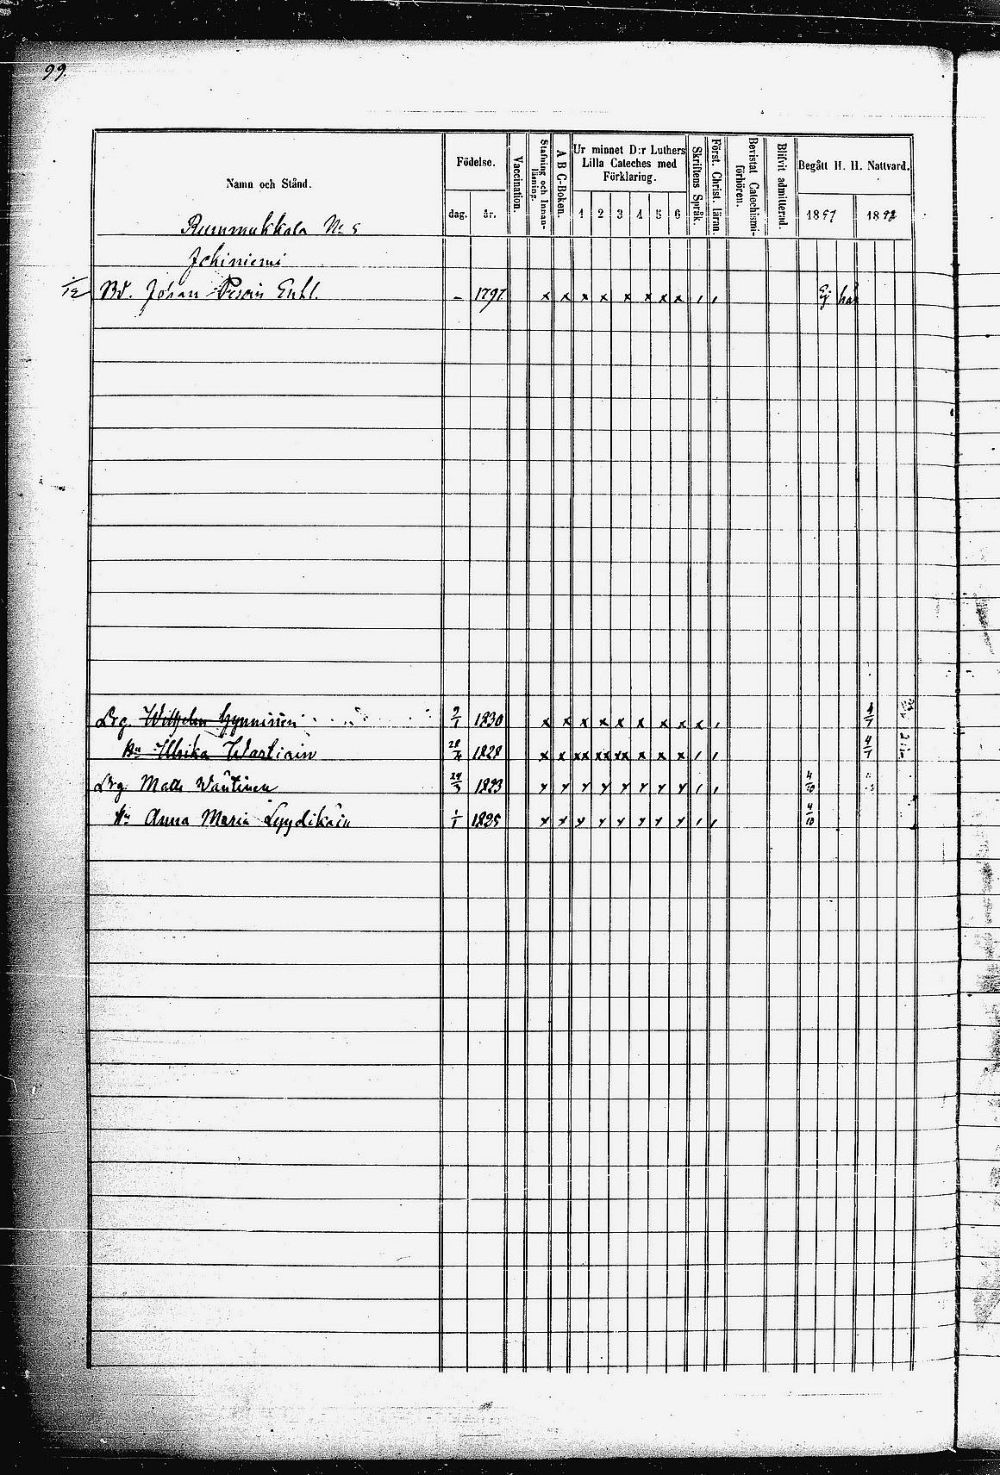 99.
Namn och Stånd.
Födelse.
dag.
år.
Vaccination.
Stafning och Innanläsning.
A B C-Boken.
Ur minnet D:r Luthers Lilla Cateches med Förklaring.
1 2 3 4 5 6
Skriftens Språk.
Först. Christ. läran.
Bevistat Catechismiförhören.
Blifvit admitterad.
Begått H. H. Nattvard.
1857
18
Rummukkala No 5
Ichiniemi
Bd. Johan Enkl. - 1797 x x x x x x x x , , Ej här
Drg. Wilhelm Hynninen 2/1 1830 x x x x x x x x x ,
Hu Ulrika 28/4 1828 x x xx xx xx x x x , ,
Drg Matts Väntinen 24/3 1823 x x x x x x x x , , 4/10
Hu Anna Maria 1/1 1825 x x x x x x x x , , 4/10